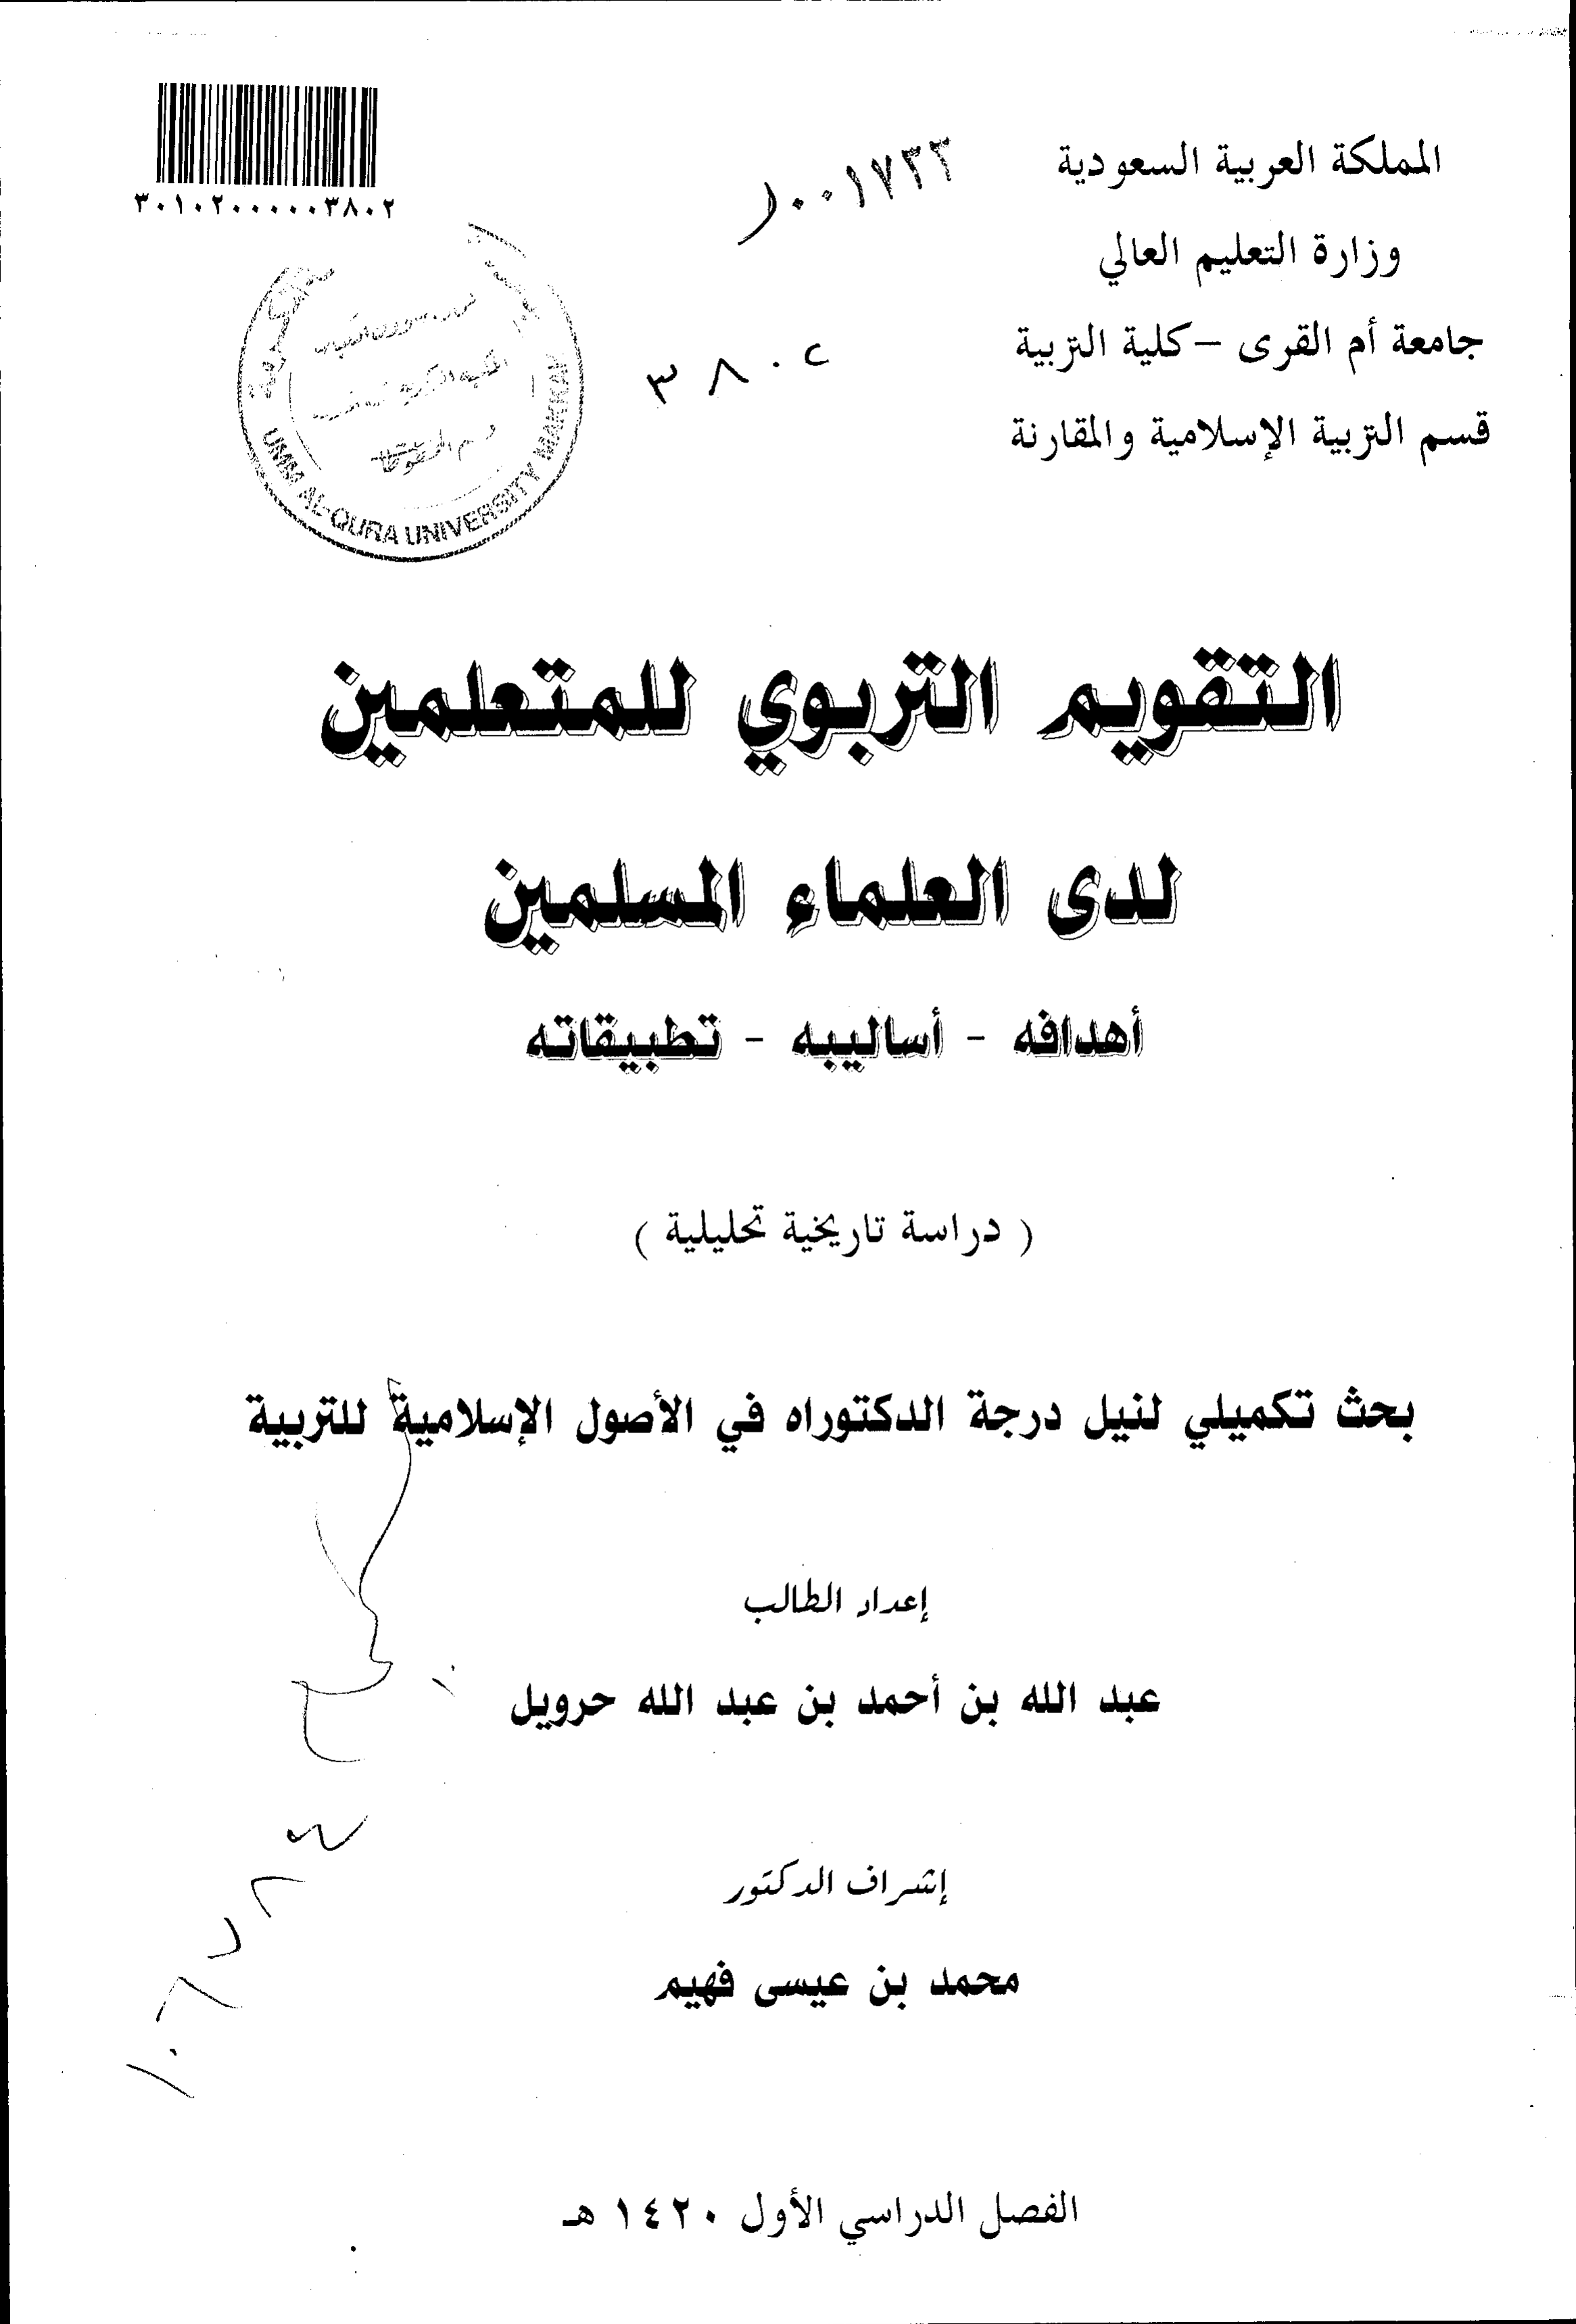 المملكة العربية السعودية
وزارة التعليم العالي
جامعة أم القرى – كلية التربية
قسم التربية الإسلامية والمقارنة
٣٠١٠٢٠٠٠٠٠٣٨٠٢
٠٠١٧٣٣
٣٨٠٢
UMM AL-QURA UNIVERSITY MAKKAH
التقويم التربوي للمتعلمين
لدى العلماء المسلمين
أهدافه - أساليبه - تطبيقاته
( دراسة تاريخية تحليلية )
بحث تكميلي لنيل درجة الدكتوراه في الأصول الإسلامية للتربية
إعداد الطالب
عبد الله بن أحمد بن عبد الله حرويل
إشراف الدكتور
محمد بن عيسى فهيم
الفصل الدراسي الأول ١٤٢٠ هـ